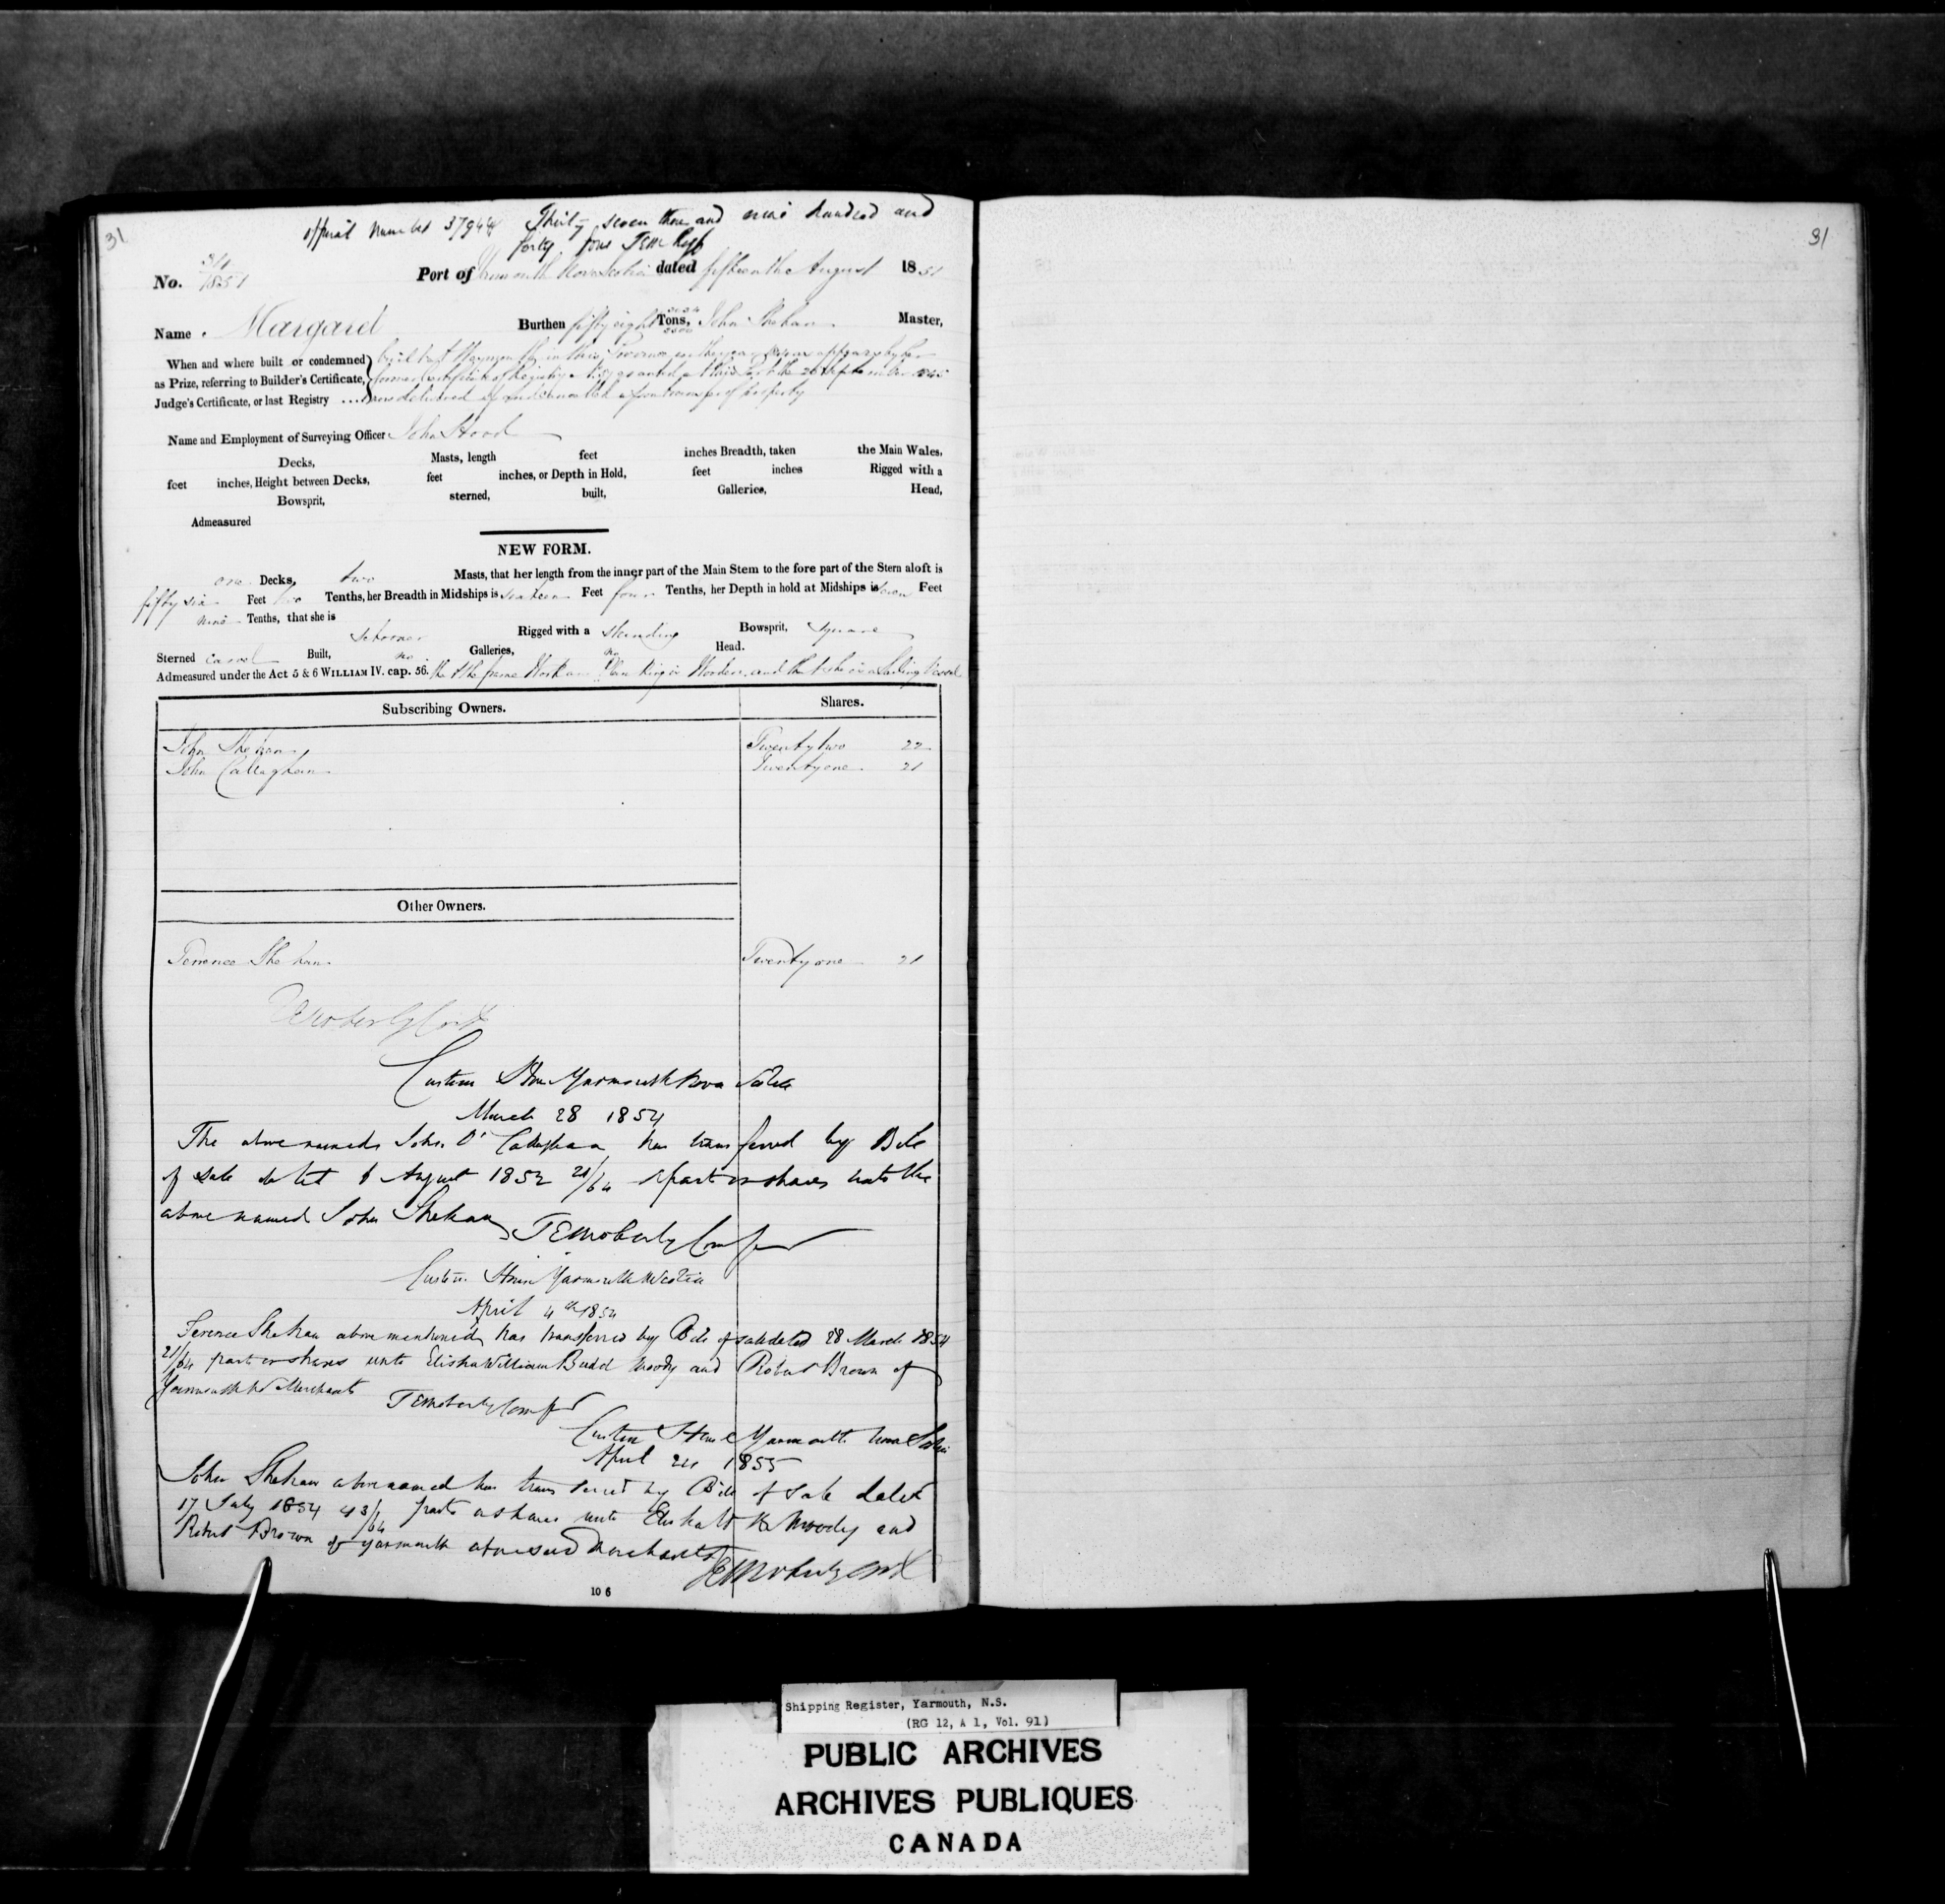 31
official number 37944 Thirty seven thousand nine hundred and
forty four TEM
No. 31/1851 Port of Yarmouth Nova Scotia dated fifteenth August 1851
Name Margaret Burthen fifty eight Tons, John Shehan Master,
When and where built or condemned
as Prize, referring to Builder's Certificate,
Judge's Certificate, or last Registry ....
built at in this Province in the year as appears by her
former Certificate of Registry granted at this Port the 20 September
now delivered up and cancelled upon transfer of property
Name and Employment of Surveying Officer John Hood
Decks, Masts, length feet inches Breadth, taken the Main Wales,
feet inches, Height between Decks, feet inches, or Depth in Hold, feet inches Rigged with a
Bowsprit, sterned, built, Galleries, Head,
Admeasured
NEW FORM.
one Decks, two Masts, that her length from the inner part of the Main Stem to the fore part of the Stern aloft is
fifty six Feet two Tenths, her Breadth in Midships is sixteen Feet four Tenths, her Depth in hold at Midships is seven Feet
nine Tenths, that she is
Schooner Rigged with a standing Bowsprit, Square
Sterned carvel Built, no Galleries, no Head.
Admeasured under the Act 5 & 6 WILLIAM IV. cap. 56. that the frame Work and Planking is Wooden, and that she is a Sailing Vessel
Subscribing Owners. Shares.
John Shehan Twenty two 22
John Callaghan Twenty one 21
Other Owners.
Terrence Shehan Twenty one 21
TEMoberly Cont
Custom House Yarmouth Nova Scotia
March 28 1854
The above named John O'Callaghan has transferred by Bill
of Sale dated 6 August 1852 21/64 parts or shares unto the
above named John Shehan TEMoberly Comp
Custom House Yarmouth N Scotia
April 4th 1854
Terence Shehan above mentioned has transferred by Bill of sale dated 28 March 1854
21/64 parts or shares unto Elisha William Budd Moody and Robert Brown of
Yarmouth NS Merchants TEMoberly Comp
Custom House Yarmouth Nova Scotia
April 24 1855
John Shehan above named has transferred by Bill of Sale dated
17 July 1854 43/64 parts or shares unto Elisha W B Moody and
Robert Brown of Yarmouth aforesaid Merchants
TEMoberly Cont
10 6
31
Shipping Register, Yarmouth, N.S.
(RG 12, A 1, Vol. 91)
PUBLIC ARCHIVES
ARCHIVES PUBLIQUES
CANADA